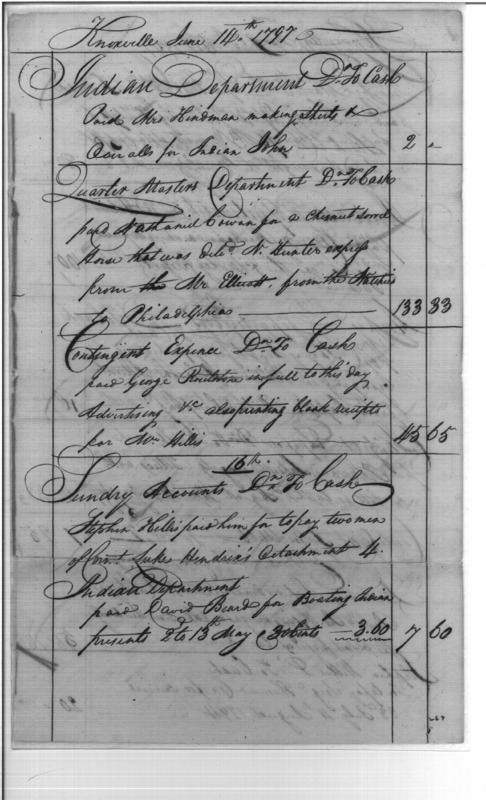 Knoxville June 14.th 1797
Indian Department Dr. To Cash
Paid Mrs Hindman making Shirts &
Overalls for Indian John 2 "
Quarter Masters Department Dr. To Cash
paid Nathaniel Cowan for a Chesnut Sorrel
Horse that was deld. N. Hunter express
from Mr Ellicott, from the Natchis
to Philadelphia 133 33
Contingent Expence Dr. To Cash
paid George Roulstone in full to this day
Advertising &c also printing blank receipts
for Hillis 45 65
16th.
Sundry Accounts Dr. To Cash
Stephen Hillis paid him for to pay two men
of Luke Hendrix's Detachment 4.
Indian Department
paid David Beard for Boating Indian
presents to 13th May 3.60 7 60